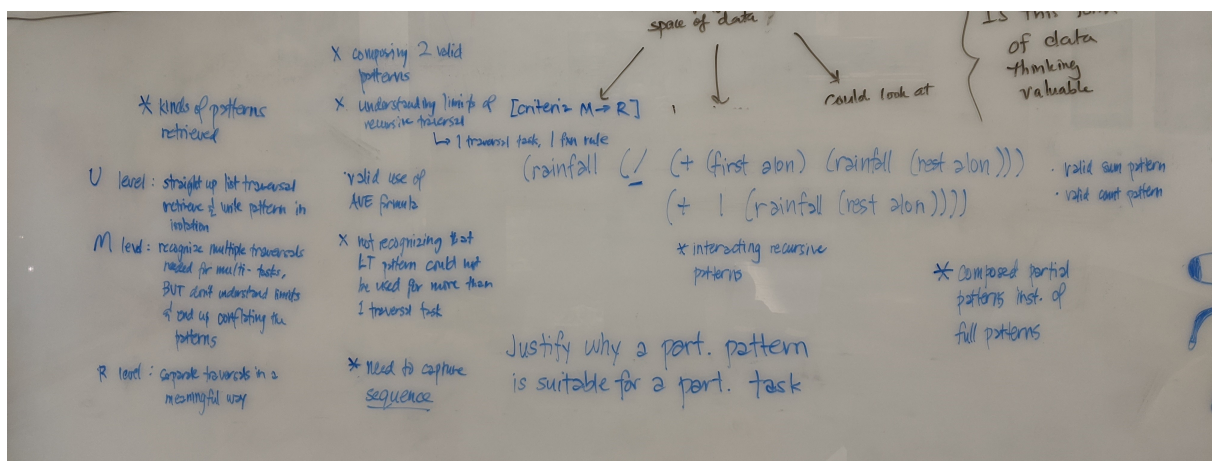 space of data?
Is this
of data
thinking
valuable
could look at
* kinds of patterns
retrieved
U level: straight up list traversal
retrieve & write pattern in
isolation
M level: recognize multiple traversals
needed for multi-tasks,
BUT don't understand limits
& end up conflating the
patterns
R level: separate traversals in a
meaningful way
* composing 2 valid
patterns
* understanding limits of
recursive traversal
↳ 1 traversal task, 1 fxn rule
[criteria M→R]
· valid use of
AVE formula
* not recognizing that
LT pattern could not
be used for more than
1 traversal task
* need to capture
sequence
(rainfall (/ (+ (first alon) (rainfall (rest alon)))
(+ 1 (rainfall (rest alon))))
· valid sum pattern
· valid count pattern
* interacting recursive
patterns
* composed partial
patterns inst. of
full patterns
Justify why a part. pattern
is suitable for a part. task